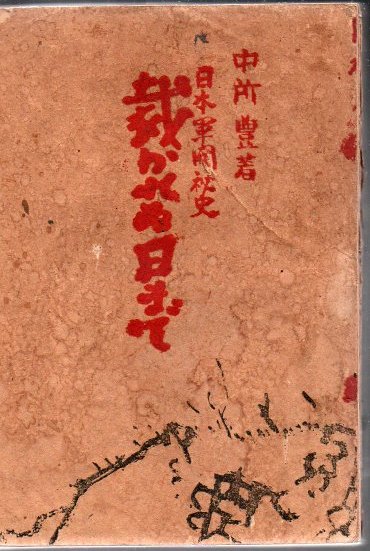 中所豊著
日本軍閥秘史
裁かれる日まで